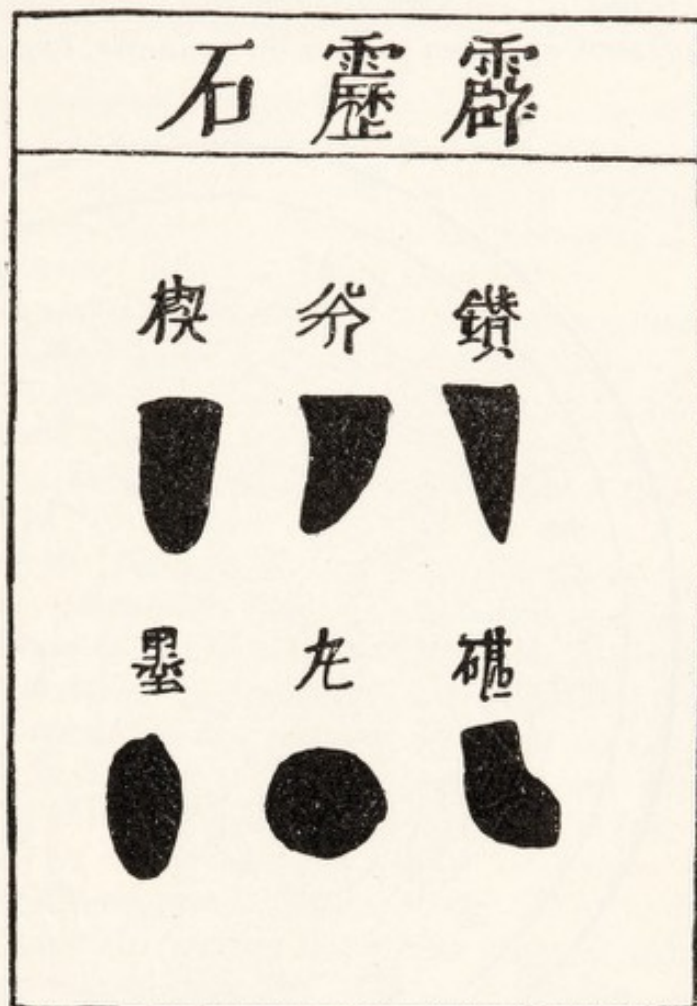 霹靂石
鑽 斧 楔
碪 丸 墨